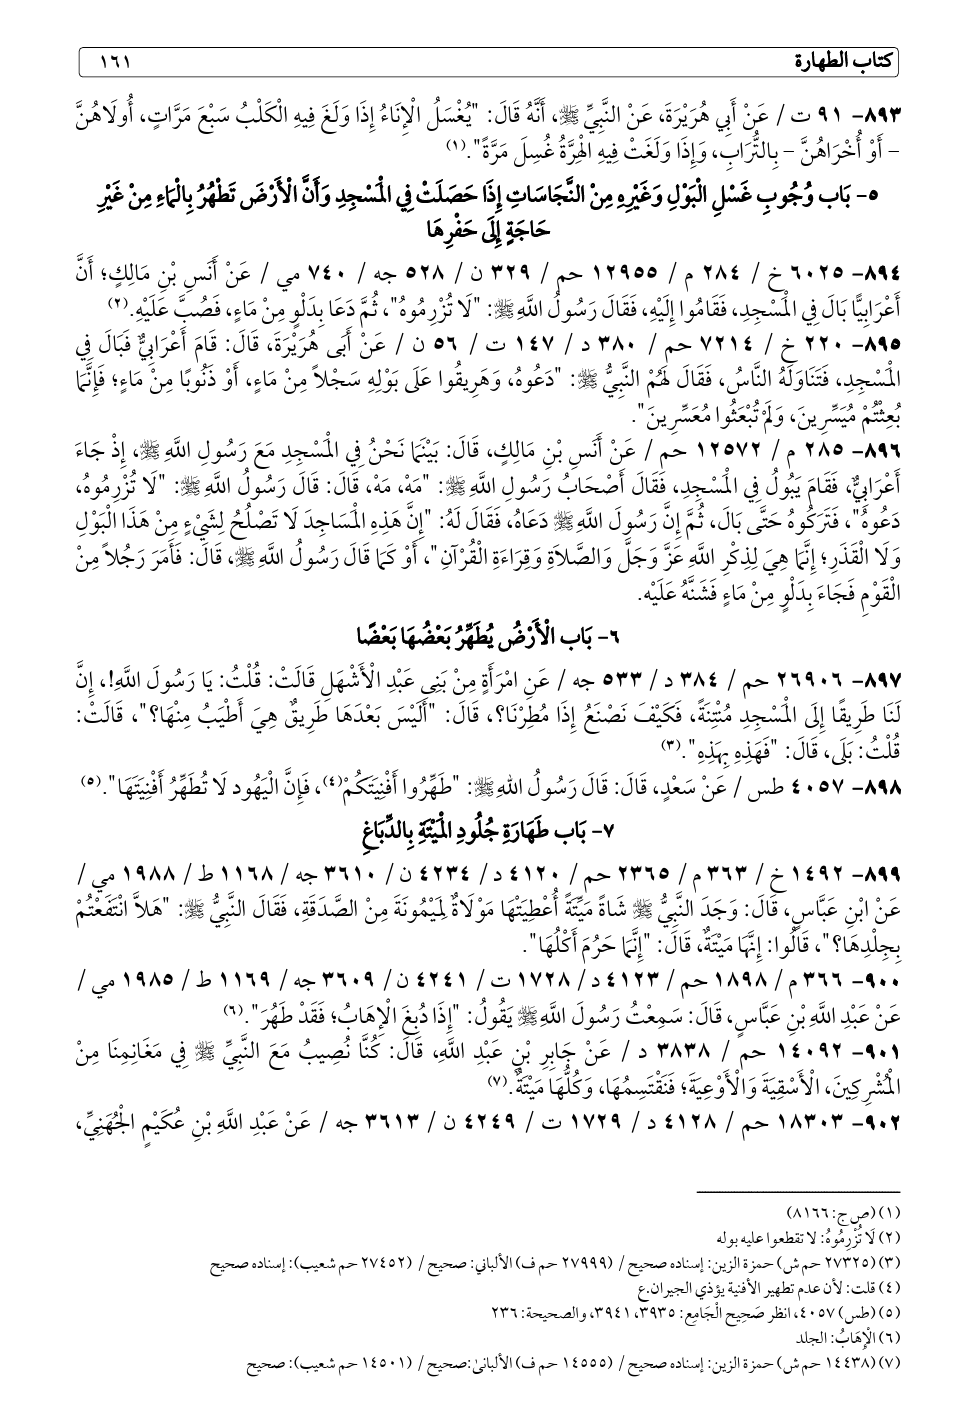 كتاب الطهارة ١٦١
٨٩٣- ٩١ ت / عَنْ أَبِي هُرَيْرَةَ، عَنْ النَّبِيِّ ﷺ، أَنَّهُ قَالَ: "يُغْسَلُ الْإِنَاءُ إِذَا وَلَغَ فِيهِ الْكَلْبُ سَبْعَ مَرَّاتٍ، أُولَاهُنَّ
– أَوْ أُخْرَاهُنَّ – بِالتُّرَابِ، وَإِذَا وَلَغَتْ فِيهِ الْهِرَّةُ غُسِلَ مَرَّةً".(١)
٥- بَاب وُجُوبِ غَسْلِ الْبَوْلِ وَغَيْرِهِ مِنْ النَّجَاسَاتِ إِذَا حَصَلَتْ فِي الْمَسْجِدِ وَأَنَّ الْأَرْضَ تَطْهُرُ بِالْمَاءِ مِنْ غَيْرِ
حَاجَةٍ إِلَى حَفْرِهَا
٨٩٤- ٦٠٢٥ خ / ٢٨٤ م / ١٢٩٥٥ حم / ٣٢٩ ن / ٥٢٨ جه / ٧٤٠ مي / عَنْ أَنَسِ بْنِ مَالِكٍ؛ أَنَّ
أَعْرَابِيًّا بَالَ فِي الْمَسْجِدِ، فَقَامُوا إِلَيْهِ، فَقَالَ رَسُولُ اللَّهِ ﷺ: "لَا تُزْرِمُوهُ"، ثُمَّ دَعَا بِدَلْوٍ مِنْ مَاءٍ، فَصُبَّ عَلَيْهِ.(٢)
٨٩٥- ٢٢٠ خ / ٧٢١٤ حم / ٣٨٠ د / ١٤٧ ت / ٥٦ ن / عَنْ أَبَي هُرَيْرَةَ، قَالَ: قَامَ أَعْرَابِيٌّ فَبَالَ فِي
الْمَسْجِدِ، فَتَنَاوَلَهُ النَّاسُ، فَقَالَ لَهُمْ النَّبِيُّ ﷺ: "دَعُوهُ، وَهَرِيقُوا عَلَى بَوْلِهِ سَجْلاً مِنْ مَاءٍ، أَوْ ذَنُوبًا مِنْ مَاءٍ؛ فَإِنَّمَا
بُعِثْتُمْ مُيَسِّرِينَ، وَلَمْ تُبْعَثُوا مُعَسِّرِينَ".
٨٩٦- ٢٨٥ م / ١٢٥٧٢ حم / عَنْ أَنَسِ بْنِ مَالِكٍ، قَالَ: بَيْنَمَا نَحْنُ فِي الْمَسْجِدِ مَعَ رَسُولِ اللَّهِ ﷺ، إِذْ جَاءَ
أَعْرَابِيٌّ، فَقَامَ يَبُولُ فِي الْمَسْجِدِ، فَقَالَ أَصْحَابُ رَسُولِ اللَّهِ ﷺ: "مَهْ، مَهْ، قَالَ: قَالَ رَسُولُ اللَّهِ ﷺ: "لَا تُزْرِمُوهُ،
دَعُوهُ"، فَتَرَكُوهُ حَتَّى بَالَ، ثُمَّ إِنَّ رَسُولَ اللَّهِ ﷺ دَعَاهُ، فَقَالَ لَهُ: "إِنَّ هَذِهِ الْمَسَاجِدَ لَا تَصْلُحُ لِشَيْءٍ مِنْ هَذَا الْبَوْلِ
وَلَا الْقَذَرِ؛ إِنَّمَا هِيَ لِذِكْرِ اللَّهِ عَزَّ وَجَلَّ وَالصَّلَاةِ وَقِرَاءَةِ الْقُرْآنِ"، أَوْ كَمَا قَالَ رَسُولُ اللَّهِ ﷺ، قَالَ: فَأَمَرَ رَجُلاً مِنْ
الْقَوْمِ فَجَاءَ بِدَلْوٍ مِنْ مَاءٍ فَشَنَّهُ عَلَيْهِ.
٦- بَاب الْأَرْضُ يُطَهِّرُ بَعْضُهَا بَعْضًا
٨٩٧- ٢٦٩٠٦ حم / ٣٨٤ د / ٥٣٣ جه / عَنِ امْرَأَةٍ مِنْ بَنِي عَبْدِ الْأَشْهَلِ قَالَتْ: قُلْتُ: يَا رَسُولَ اللَّهِ!، إِنَّ
لَنَا طَرِيقًا إِلَى الْمَسْجِدِ مُنْتِنَةً، فَكَيْفَ نَصْنَعُ إِذَا مُطِرْنَا؟، قَالَ: "أَلَيْسَ بَعْدَهَا طَرِيقٌ هِيَ أَطْيَبُ مِنْهَا؟"، قَالَتْ:
قُلْتُ: بَلَى، قَالَ: "فَهَذِهِ بِهَذِهِ".(٣)
٨٩٨- ٤٠٥٧ طس / عَنْ سَعْدٍ، قَالَ: قَالَ رَسُولُ اللهِ ﷺ: "طَهِّرُوا أَفْنِيَتَكُمْ(٤)، فَإِنَّ الْيَهُود لَا تُطَهِّرُ أَفْنِيَتَهَا".(٥)
٧- بَاب طَهَارَةِ جُلُودِ الْمَيْتَةِ بِالدِّبَاغِ
٨٩٩- ١٤٩٢ خ / ٣٦٣ م / ٢٣٦٥ حم / ٤١٢٠ د / ٤٢٣٤ ن / ٣٦١٠ جه / ١١٦٨ ط / ١٩٨٨ مي /
عَنْ ابْنِ عَبَّاسٍ، قَالَ: وَجَدَ النَّبِيُّ ﷺ شَاةً مَيِّتَةً أُعْطِيَتْهَا مَوْلَاةٌ لِمَيْمُونَةَ مِنْ الصَّدَقَةِ، فَقَالَ النَّبِيُّ ﷺ: "هَلاَّ انْتَفَعْتُمْ
بِجِلْدِهَا؟"، قَالُوا: إِنَّهَا مَيْتَةٌ، قَالَ: "إِنَّمَا حَرُمَ أَكْلُهَا".
٩٠٠- ٣٦٦ م / ١٨٩٨ حم / ٤١٢٣ د / ١٧٢٨ ت / ٤٢٤١ ن / ٣٦٠٩ جه / ١١٦٩ ط / ١٩٨٥ مي /
عَنْ عَبْدِ اللَّهِ بْنِ عَبَّاسٍ، قَالَ: سَمِعْتُ رَسُولَ اللَّهِ ﷺ يَقُولُ: "إِذَا دُبِغَ الْإِهَابُ؛ فَقَدْ طَهُرَ".(٦)
٩٠١- ١٤٠٩٢ حم / ٣٨٣٨ د / عَنْ جَابِرِ بْنِ عَبْدِ اللَّهِ، قَالَ: كُنَّا نُصِيبُ مَعَ النَّبِيِّ ﷺ فِي مَغَانِمِنَا مِنْ
الْمُشْرِكِينَ، الْأَسْقِيَةَ وَالْأَوْعِيَةَ؛ فَنَقْتَسِمُهَا، وَكُلُّهَا مَيْتَةٌ.(٧)
٩٠٢- ١٨٣٠٣ حم / ٤١٢٨ د / ١٧٢٩ ت / ٤٢٤٩ ن / ٣٦١٣ جه / عَنْ عَبْدِ اللَّهِ بْنِ عُكَيْمٍ الْجُهَنِيِّ،
(١) (ص ج: ٨١٦٦)
(٢) لَا تُزْرِمُوهُ: لا تقطعوا عليه بوله
(٣) (٢٧٣٢٥ حم ش) حمزة الزين: إسناده صحيح / (٢٧٩٩٩ حم ف) الألباني: صحيح / (٢٧٤٥٢ حم شعيب): إسناده صحيح
(٤) قلت: لأن عدم تطهير الأفنية يؤذي الجيران.ع
(٥) (طس) ٤٠٥٧، انظر صَحِيح الْجَامِع: ٣٩٣٥، ٣٩٤١، والصحيحة: ٢٣٦
(٦) الْإِهَابُ: الجلد
(٧) (١٤٤٣٨ حم ش) حمزة الزين: إسناده صحيح / (١٤٥٥٥ حم ف) الألبانیٰ:صحيح / (١٤٥٠١ حم شعيب): صحيح